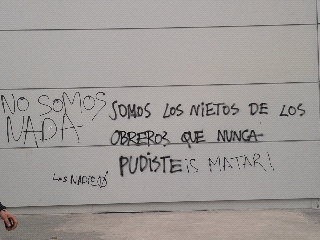 NO SOMOS
NADA
SOMOS LOS NIETOS DE LOS
OBREROS QUE NUNCA
PUDISTEis MATAR!